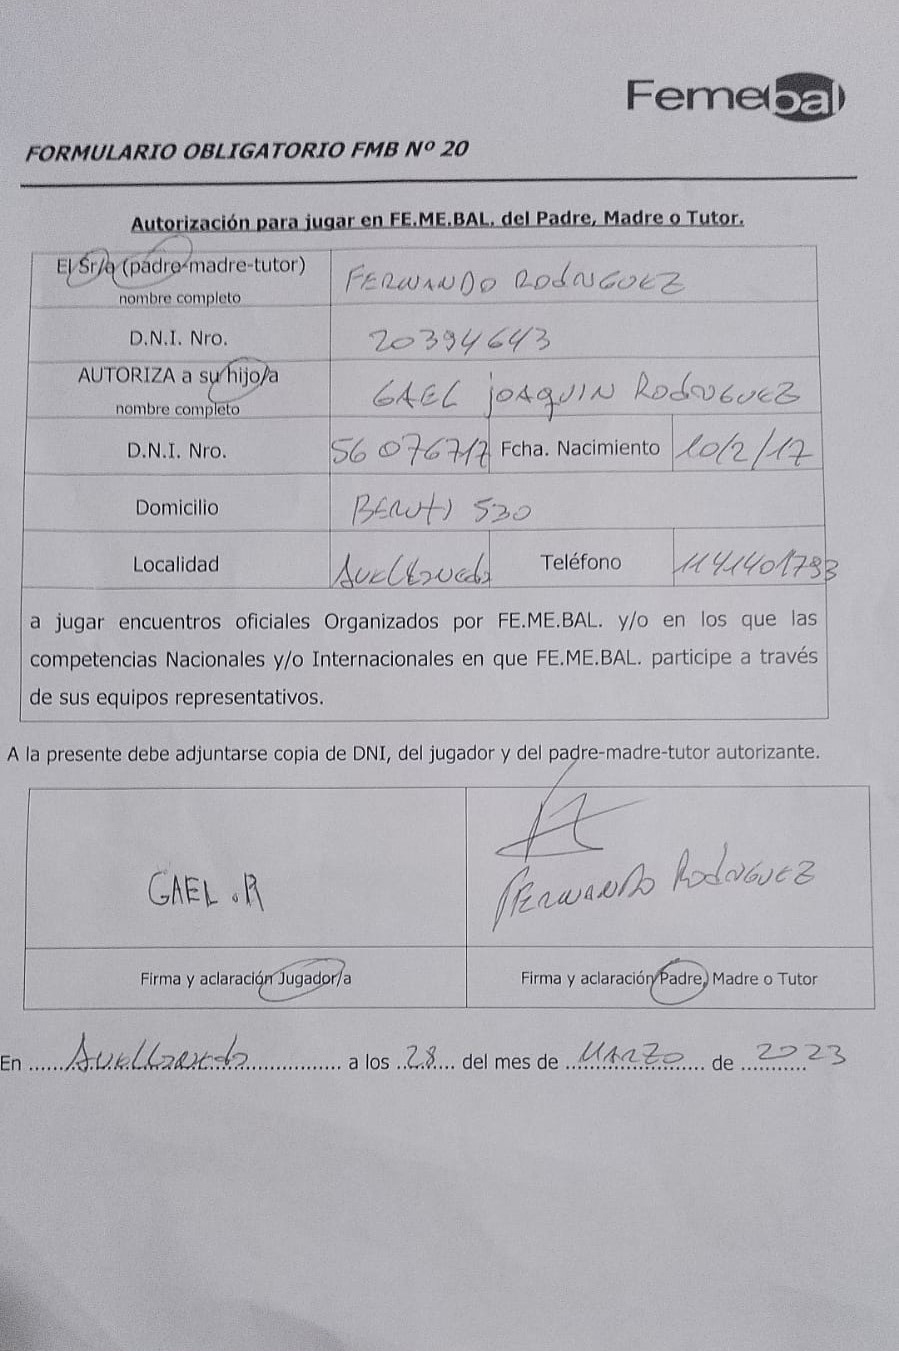 Femebal
FORMULARIO OBLIGATORIO FMB Nº 20
Autorización para jugar en FE.ME.BAL. del Padre, Madre o Tutor.
El Sr/a (padre-madre-tutor)
nombre completo
FERNANDO RODRIGUEZ
D.N.I. Nro.
20394643
AUTORIZA a su hijo/a
nombre completo
GAEL JOAQUIN RODRIGUEZ
D.N.I. Nro.
56 076717
Fcha. Nacimiento
10/2/17
Domicilio
BERUTI 530
Localidad
Avellaneda
Teléfono
1141401793
a jugar encuentros oficiales Organizados por FE.ME.BAL. y/o en los que las
competencias Nacionales y/o Internacionales en que FE.ME.BAL. participe a través
de sus equipos representativos.
A la presente debe adjuntarse copia de DNI, del jugador y del padre-madre-tutor autorizante.
GAEL . R
FERNANDO RODRIGUEZ
Firma y aclaración Jugador/a
Firma y aclaración Padre, Madre o Tutor
En Avellaneda a los 28 del mes de MARZO de 2023